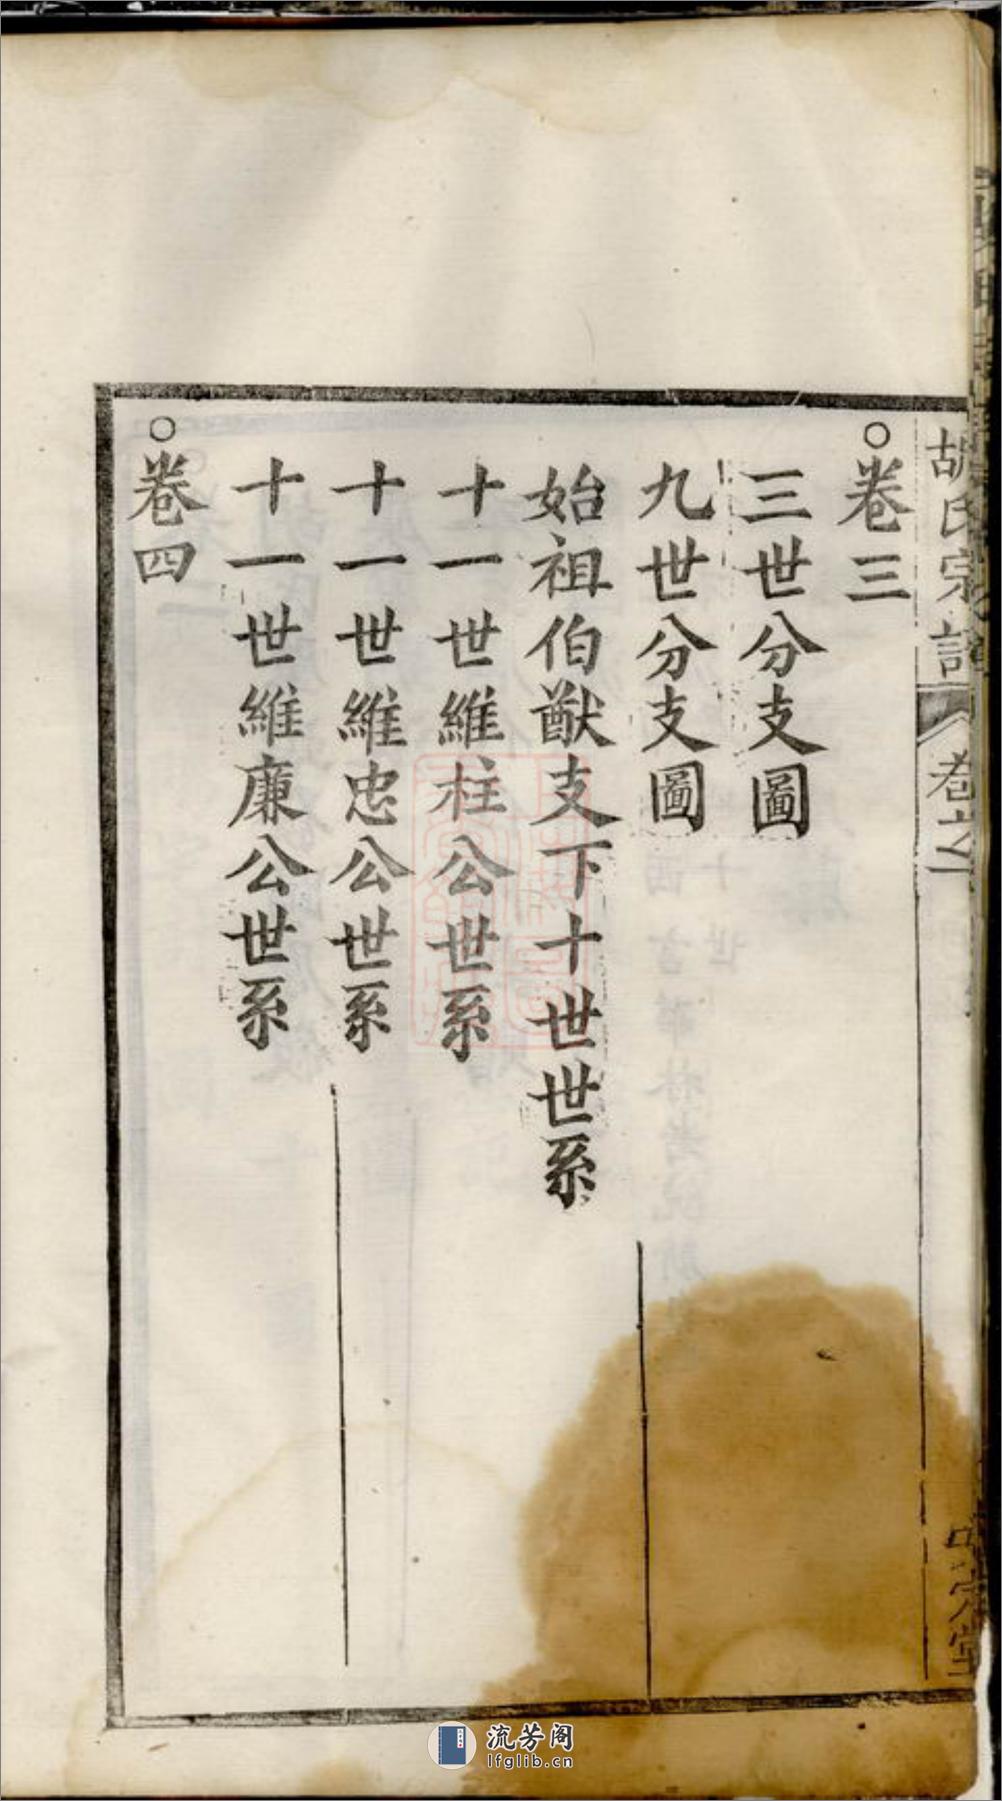 胡氏宗譜
卷之一
○卷三
三世分支圖
九世分支圖
始祖伯猷支下十世世系
十一世維柱公世系
十一世維忠公世系
十一世維廉公世系
○卷四
流芳阁
lfglib.cn